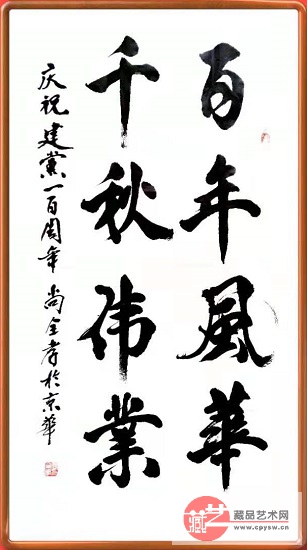 百年風華
千秋伟業
庆祝建黨一百周年 尚全孝於京華
藏品艺术网
www.cpysw.cn